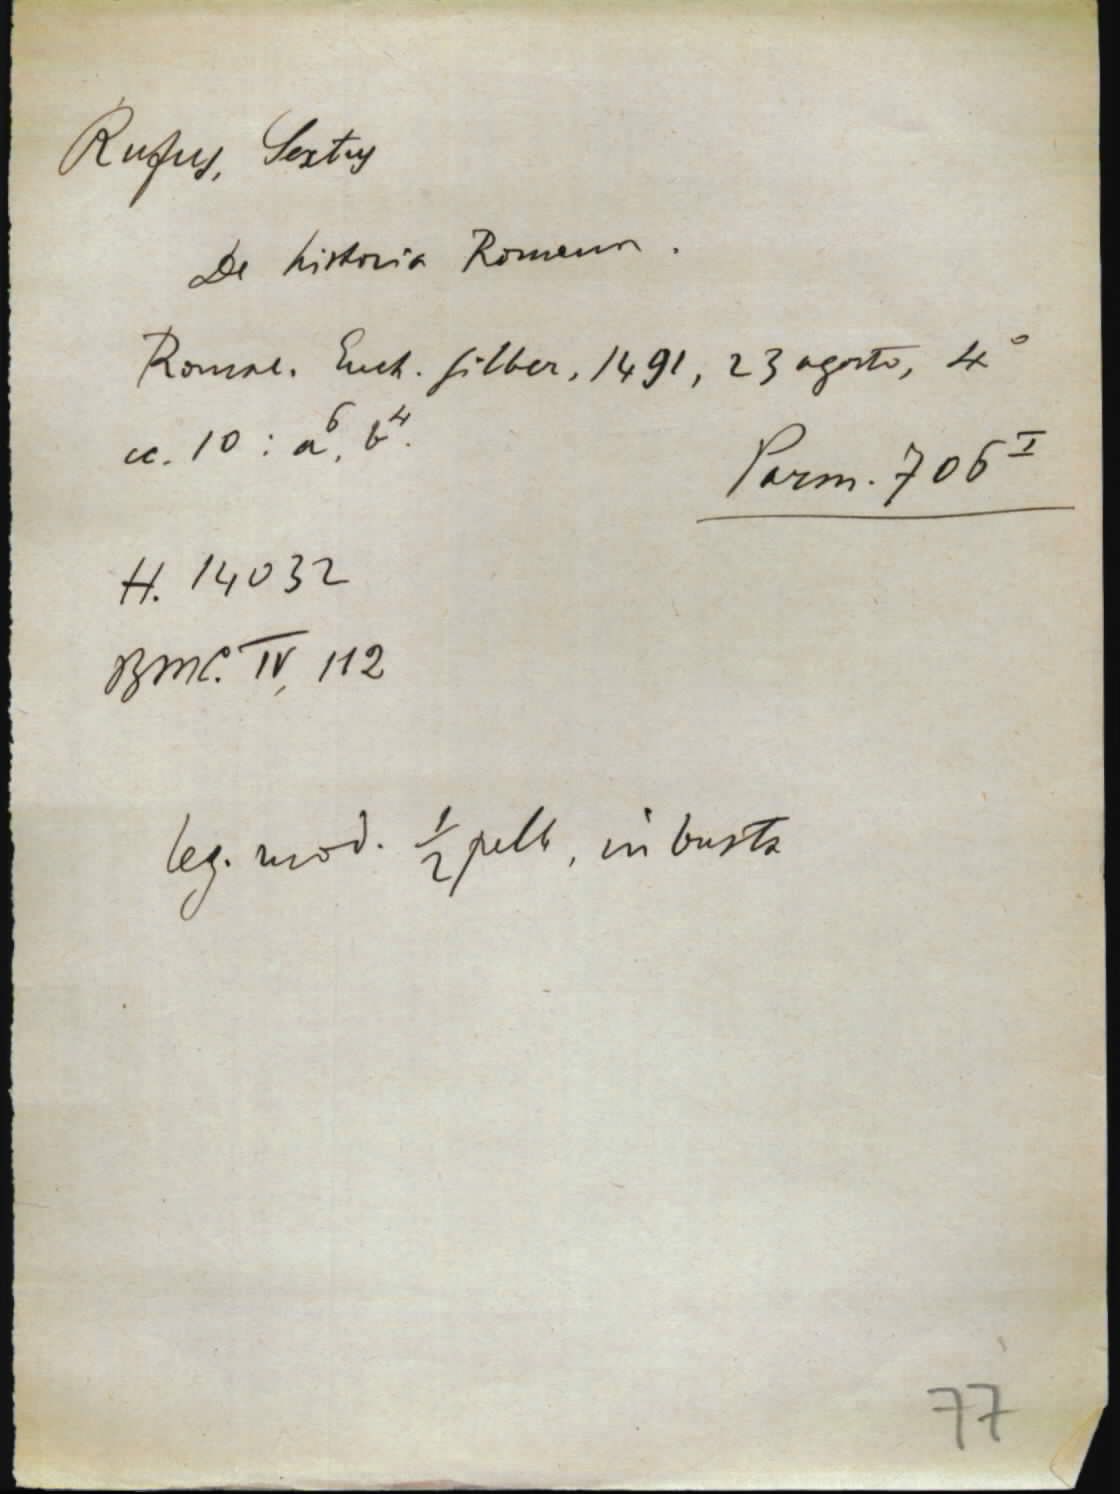 Rufus, Sextus
De historia Romana.
Romae. Euch. Silber, 1491, 23 agosto, 4°
cc. 10 : a⁶, b⁴.
Parm. 706 I
H. 14032
BMC. IV, 112
leg. mod. 1/2 pelle, in busta
77